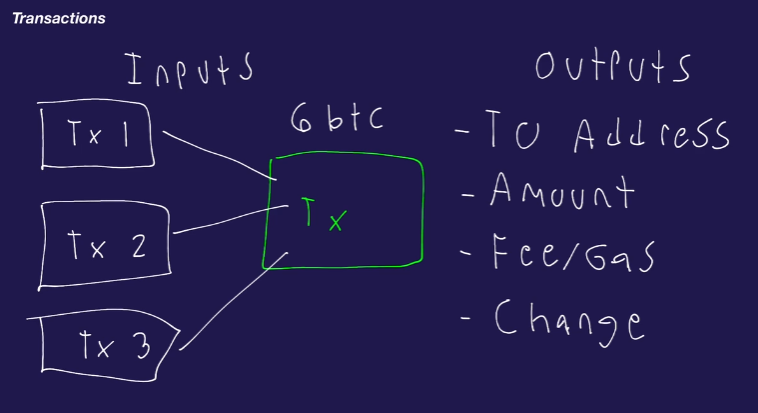 Transactions
Inputs
Tx 1
Tx 2
Tx 3
6 btc
Tx
Outputs
- To Address
- Amount
- Fee/Gas
- Change